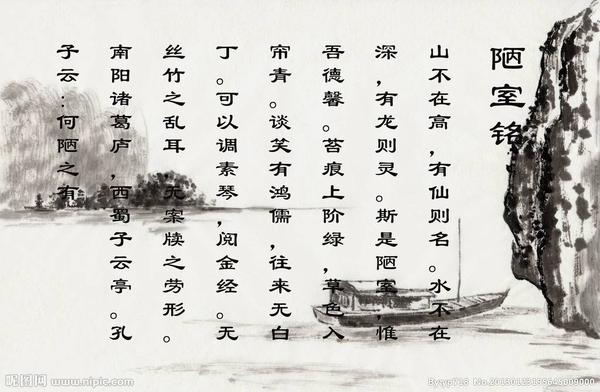 陋室铭
山不在高，有仙则名。水不在
深，有龙则灵。斯是陋室，惟
吾德馨。苔痕上阶绿，草色入
帘青。谈笑有鸿儒，往来无白
丁。可以调素琴，阅金经。无
丝竹之乱耳 无案牍之劳形。
南阳诸葛庐，西蜀子云亭。孔
子云：何陋之有
昵图网 www.nipic.com